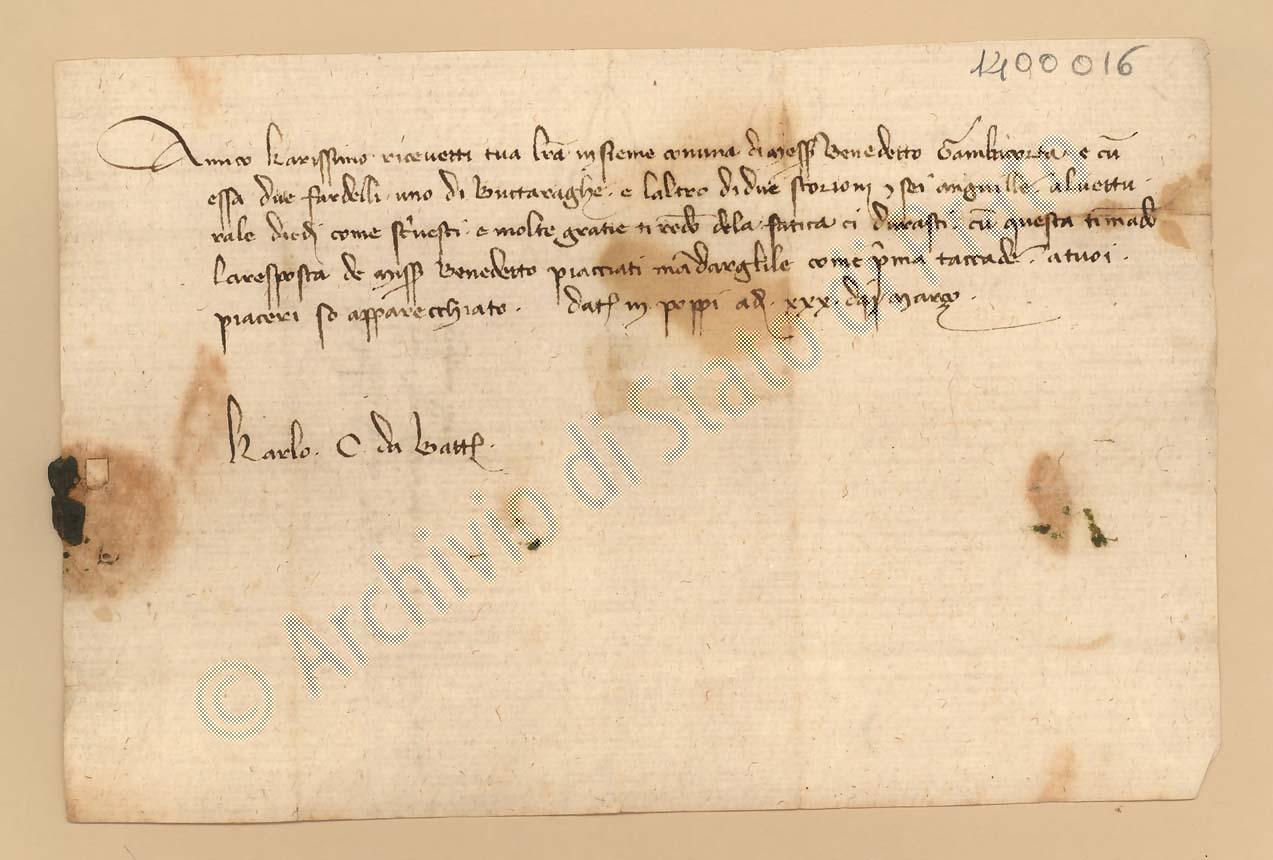 1400016
Amico karissimo ricevetti tua lr̃a insieme con una di mess Benedetto Gambacorta e cũ
essa due fardelli uno di Buctaraghe e laltro di due storioni ⁊ sei anguille. al vettu
rale diedi come scrivesti e molte gratie ti rendo dela fatica ci durasti. cũ questa ti mãdo
laresposta de miss Benedetto piacciati mãdargline come p̃ma taccade. a tuoi
piaceri so apparecchiato. Dat in poppi adi xxx di março.
Karlo. C. da Batt.
© Archivio di Stato di Prato